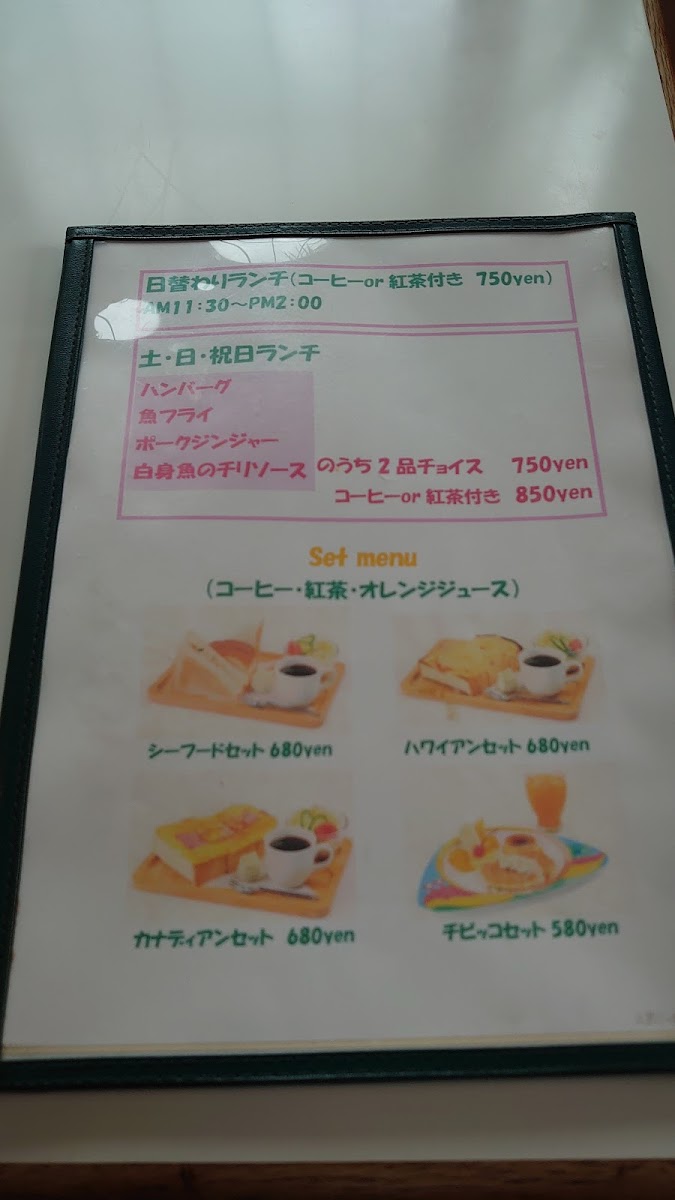 日替わりランチ(コーヒーor紅茶付き 750yen)
AM11:30～PM2:00
土・日・祝日ランチ
ハンバーグ
魚フライ
ポークジンジャー
白身魚のチリソース のうち2品チョイス 750yen
コーヒーor紅茶付き 850yen
Set menu
(コーヒー・紅茶・オレンジジュース)
シーフードセット 680yen
ハワイアンセット 680yen
カナディアンセット 680yen
チビッコセット 580yen